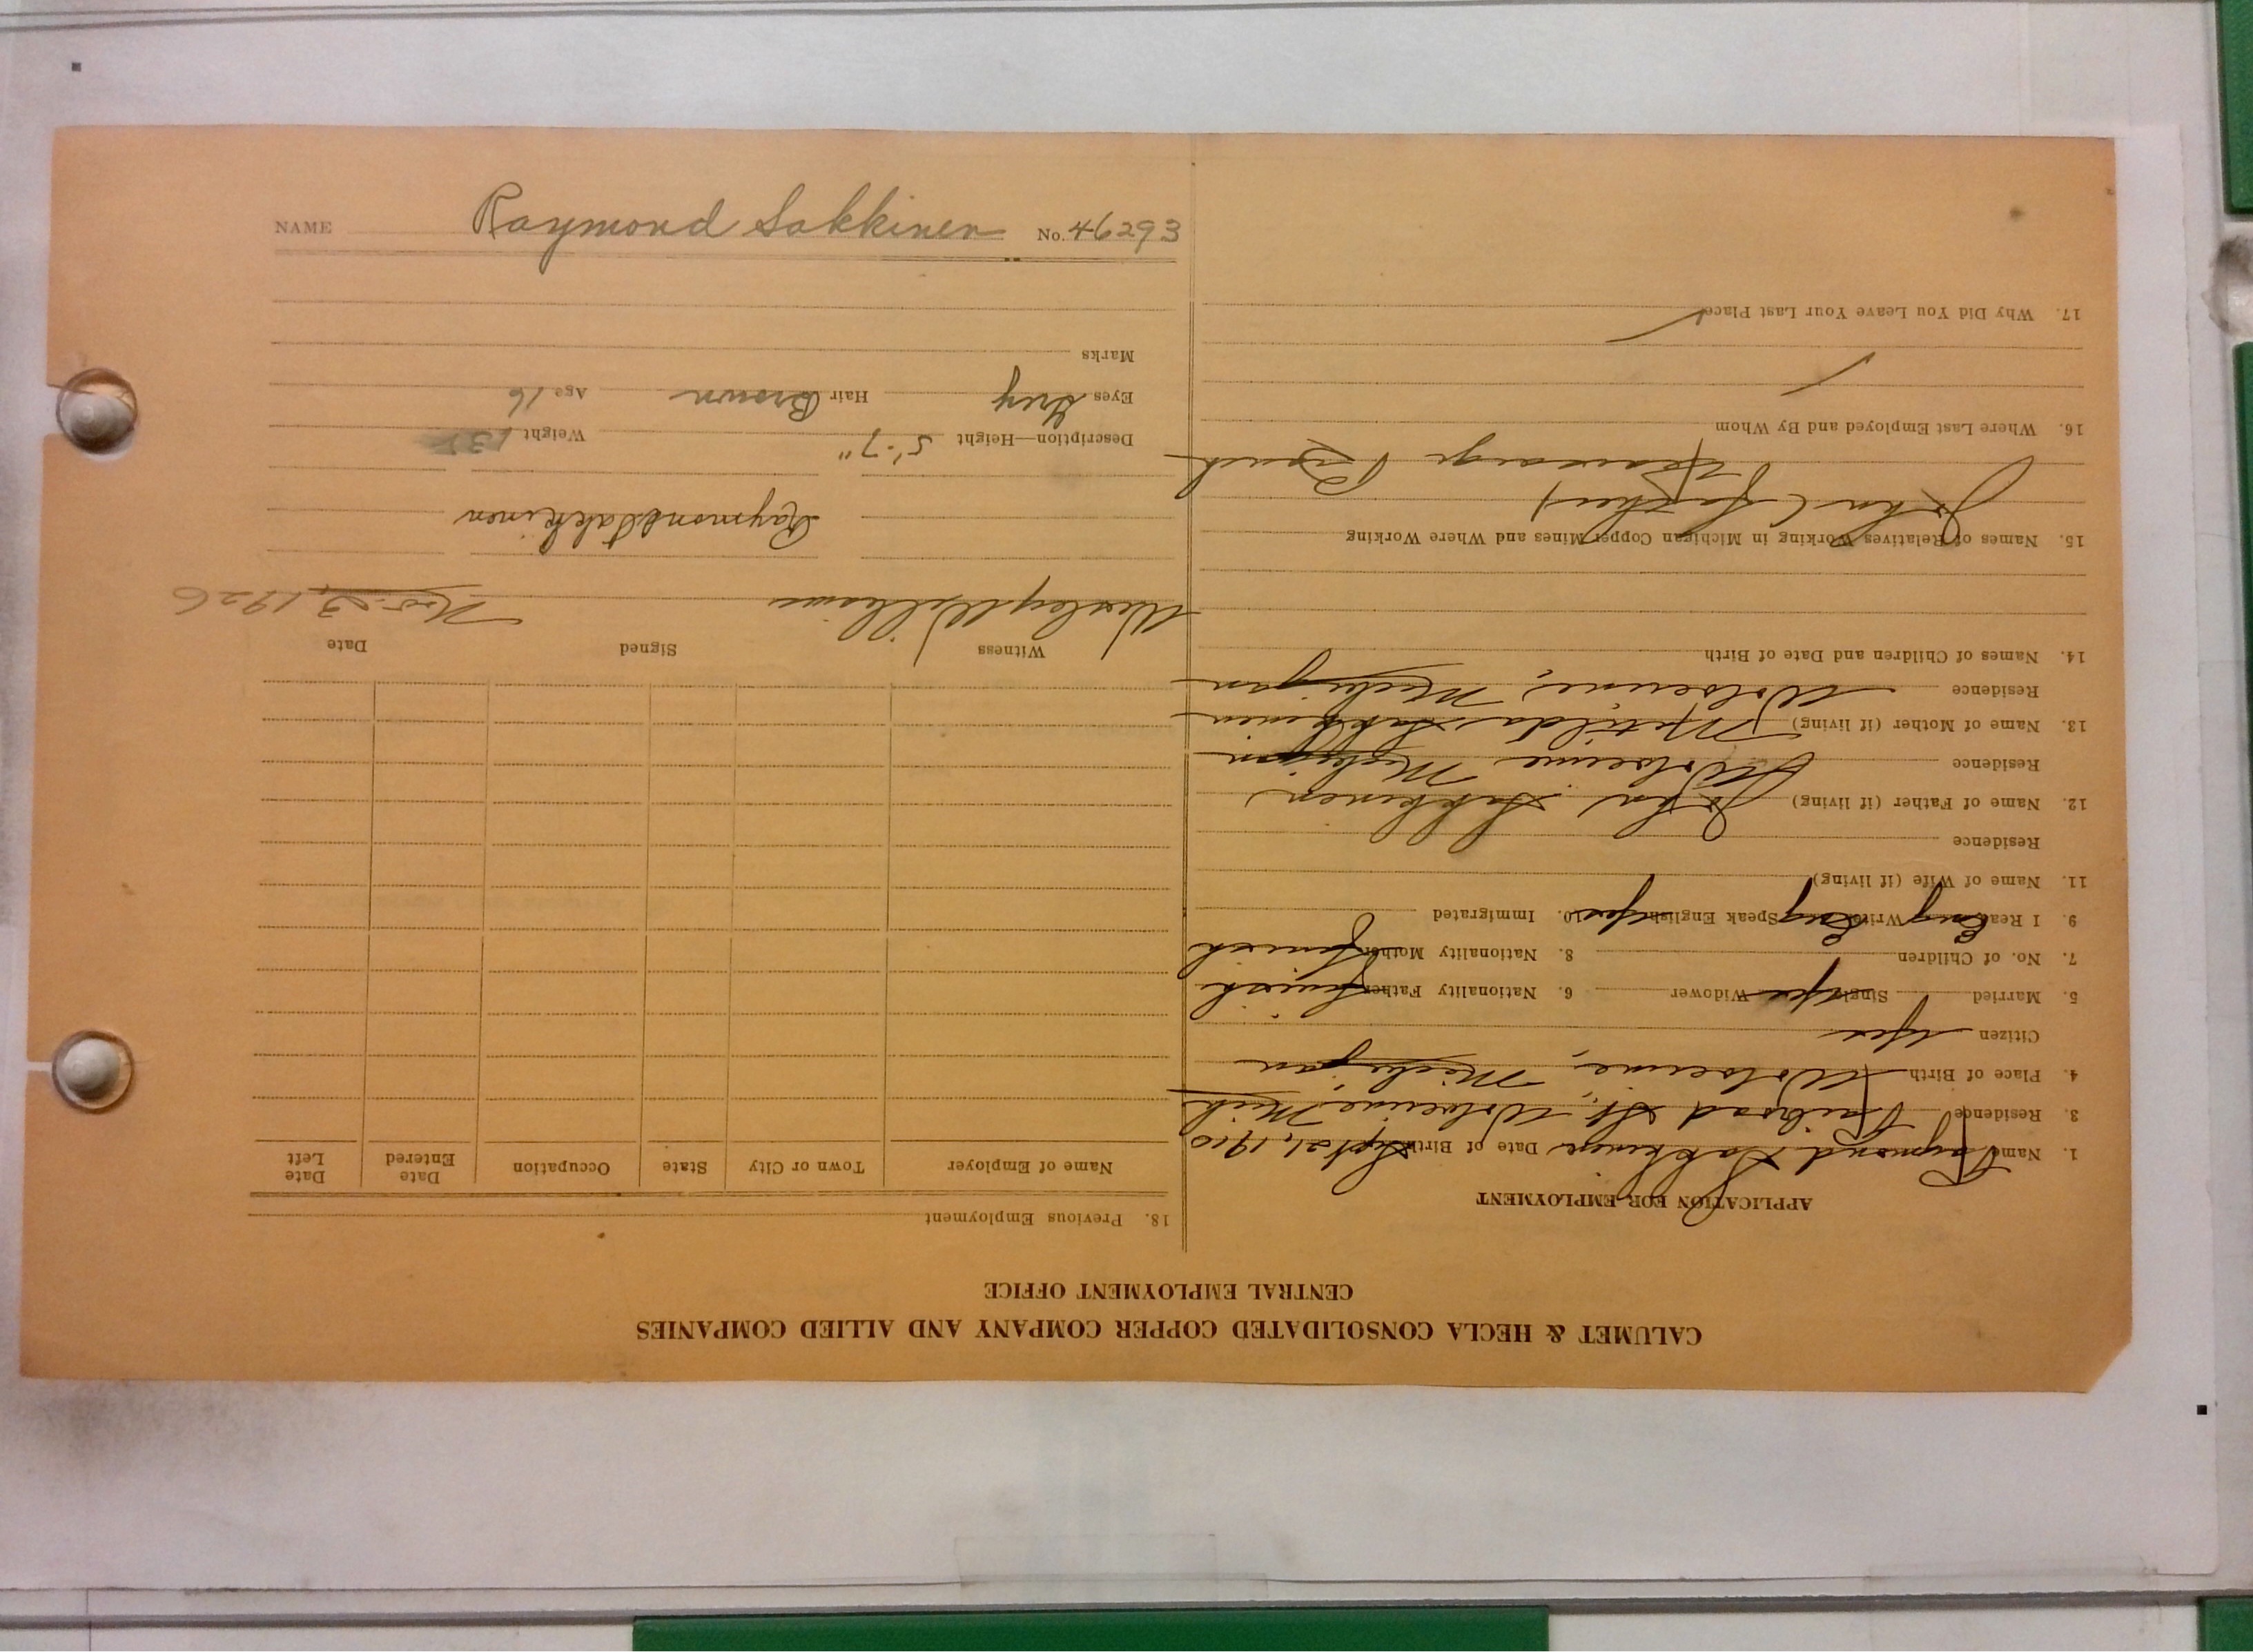 CALUMET & HECLA CONSOLIDATED COPPER COMPANY AND ALLIED COMPANIES
CENTRAL EMPLOYMENT OFFICE
APPLICATION FOR EMPLOYMENT
1. Name Raymond Sakkinen Date of Birth Sept 21, 1910
3. Residence Railroad St., Wolverine Mich
4. Place of Birth Wolverine, Michigan
Citizen Yes
5. Married Single yes Widower 6. Nationality Father Finnish
7. No. of Children 8. Nationality Mother Finnish
9. I Read Eng Write Eng Speak English yes 10. Immigrated
11. Name of Wife (if living)
Residence
12. Name of Father (if living) John Sakkinen
Residence Wolverine Michigan
13. Name of Mother (if living) Matilda Sakkinen
Residence Wolverine, Michigan
14. Names of Children and Date of Birth
15. Names of Relatives Working in Michigan Copper Mines and Where Working
John (father)
Branch
16. Where Last Employed and By Whom
17. Why Did You Leave Your Last Place
18. Previous Employment
Name of Employer Town or City State Occupation Date Entered Date Left
Witness Signed Date
Wesley Williams Nov. 23, 1926
Raymond Sakkinen
Description—Height 5'-7" Weight
Eyes Grey Hair Brown Age 16
Marks
NAME Raymond Sakkinen No. 46293